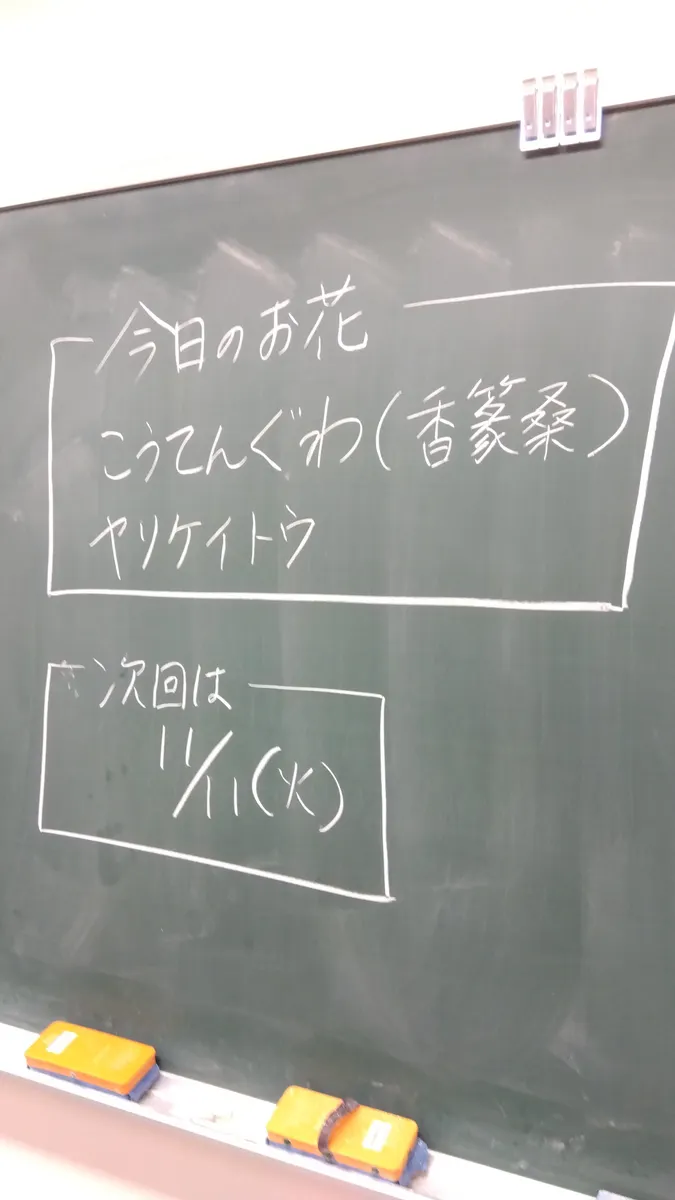 今日のお花
こうてんぐわ(香篆桑)
ヤリケイトウ
次回は
11/11(火)